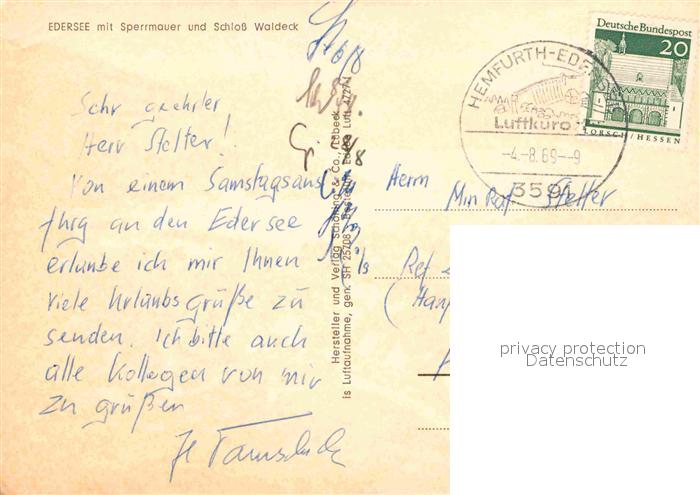 EDERSEE mit Sperrmauer und Schloß Waldeck
Sehr geehrter
Herr Stelter!
Von einem Samstagsaus
flug an den Edersee
erlaube ich mir Ihnen
viele Urlaubsgrüße zu
senden. Ich bitte auch
alle Kollegen von mir
zu grüßen
Hersteller und Verlag Schöning & Co., Lübeck
is Luftaufnahme, gen. SH 25708 Luft 4727
Deutsche Bundespost
20
LORSCH/HESSEN
HEMFURTH-EDE
Luftkurort
-4.-8.69--9
3591
Herrn
Min Rat Stelter
Ref
privacy protection
Datenschutz